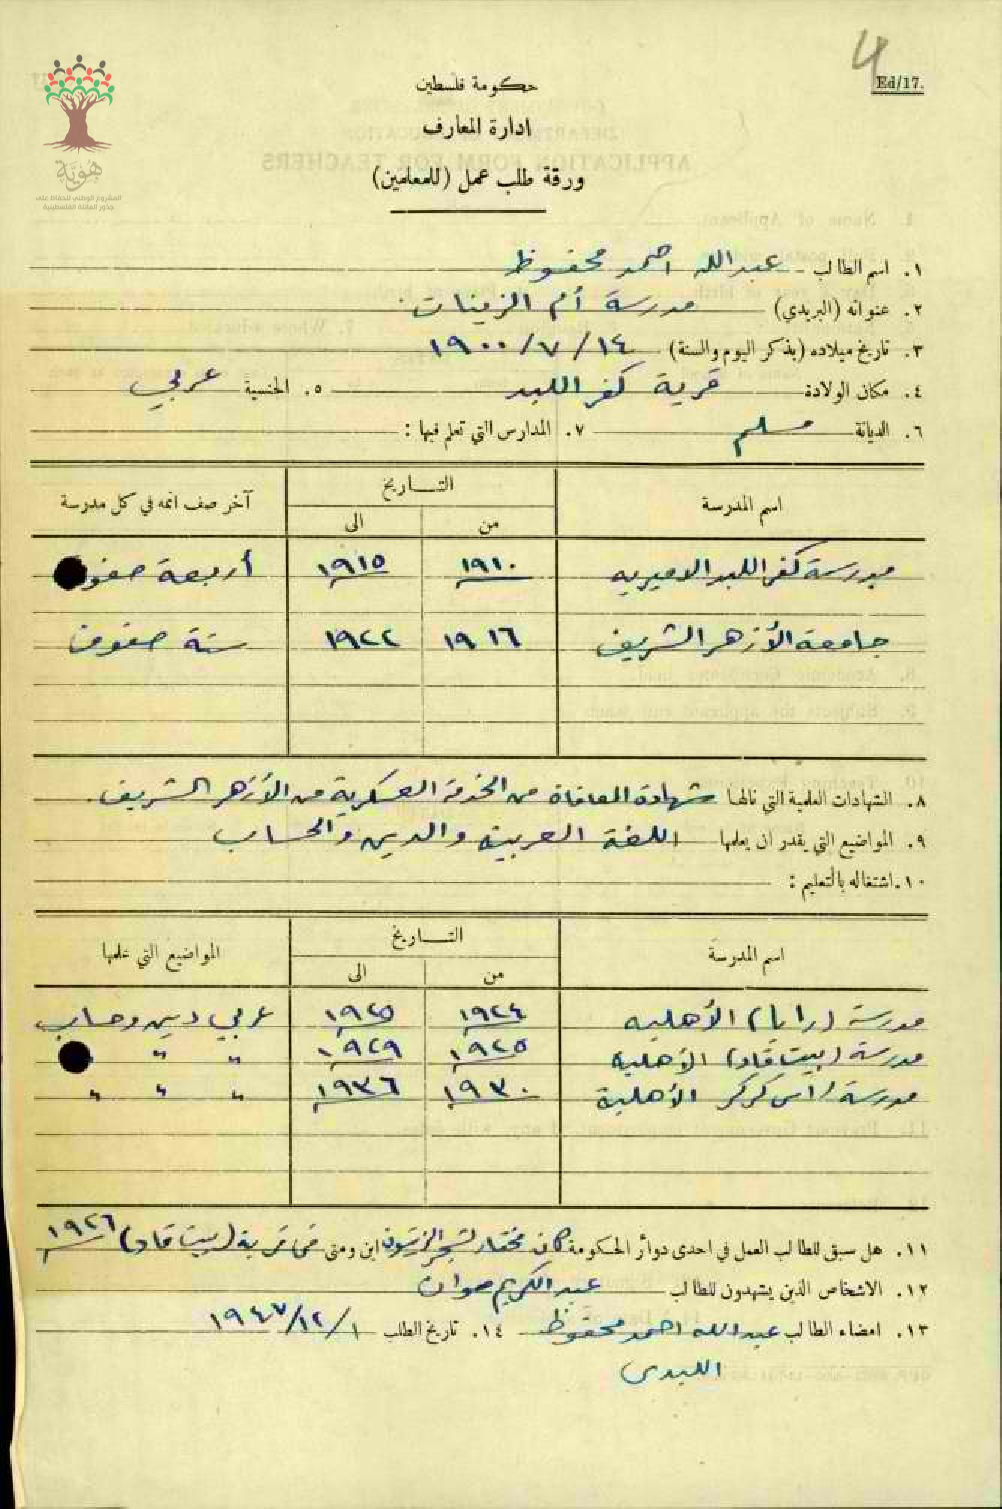 4
Ed/17.
هُوِيَّة
المشروع الوطني للحفاظ على
جذور العائلة الفلسطينية
حكومة فلسطين
ادارة المعارف
ورقة طلب عمل (للمعلمين)
١. اسم الطالب عبد الله احمد محفوظ
٢. عنوانه (البريدي) مدرسة أم الزينات
٣. تاريخ ميلاده (بذكر اليوم والسنة) ١٤/٧/١٩٠٠
٤. مكان الولادة قرية كفر اللبد ٥. الجنسية عربي
٦. الديانة مسلم ٧. المدارس التي تعلم فيها :
اسم المدرسة التـــاريخ آخر صف اتمه في كل مدرسة
من الى
مدرسة كفر اللبد الاميريه ١٩١٠ ١٩١٥ أربعة صفوف
جامعة الأزهر الشريف ١٩١٦ ١٩٢٢ ستة صفوف
٨. الشهادات العلمية التي نالها شهادة المعافاة من الخدمة العسكرية من الأزهر الشريف.
٩. المواضيع التي يقدر ان يعلمها اللغة العربية والدين والحساب
١٠. اشتغاله بالتعليم :
اسم المدرسة التـــاريخ المواضيع التي علمها
من الى
مدرسة (رابا) الأهليه ١٩٢٤ ١٩٢٥ عربي دين وحساب
مدرسة (بيت قاد) الأهليه ١٩٢٥ ١٩٢٩ " "
مدرسة راس كركر الأهلية ١٩٣٠ ١٩٣٦ " " "
١١. هل سبق للطالب العمل في احدى دوائر الحكومة كان مختار لشجر الزيتون اين ومتى في قرية (بيت قاد) ١٩٢٦
١٢. الاشخاص الذين يشهدون للطالب عبد الكريم
١٣. امضاء الطالب عبد الله احمد محفوظ ١٤. تاريخ الطلب ١/١٢/١٩٤٧
اللبدي